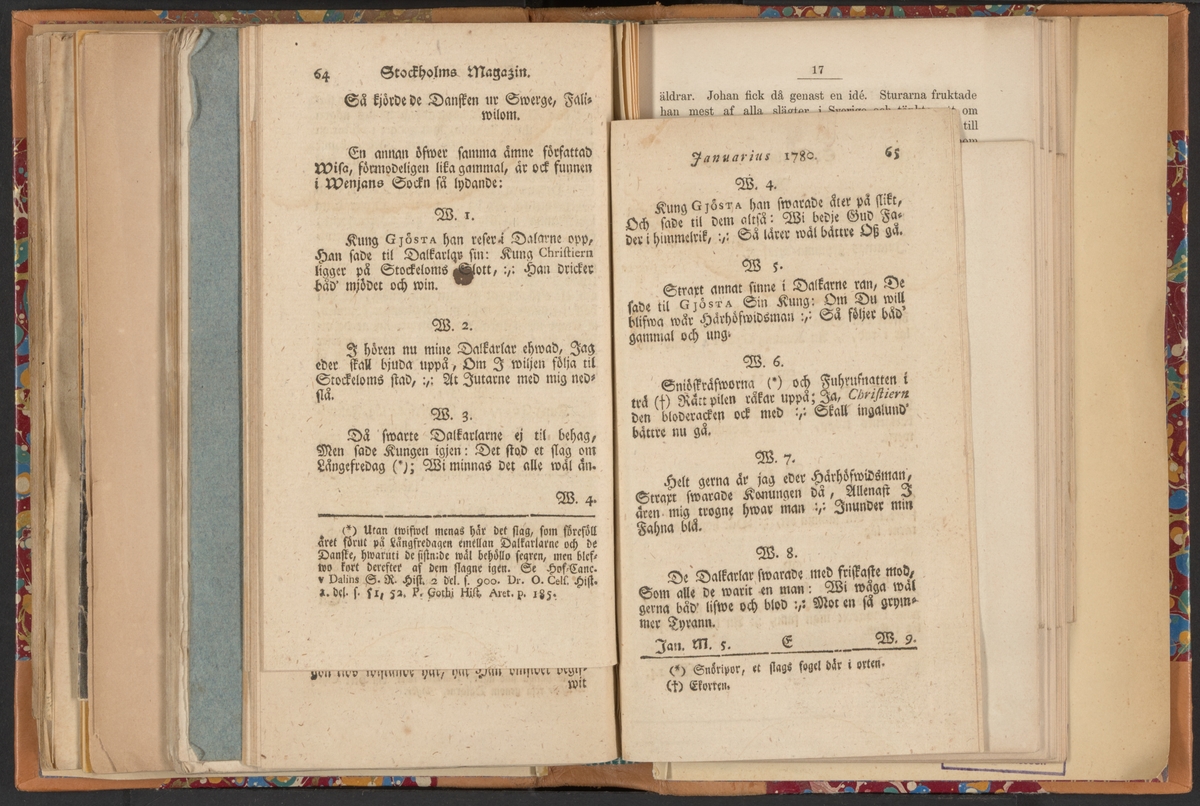 64 Stockholms Magazin.
Så kjörde de Dansken ur Swerge, Fali-
wilom.
En annan öfwer samma ämne författad
Wisa, förmodeligen lika gammal, är ock funnen
i Wenjans Sockn så lydande:
W. 1.
Kung GJÖSTA han reser i Dalarne opp,
Han sade til Dalkarlar sin: Kung Christiern
ligger på Stockeloms Slott, :,: Han dricker
båd' mjödet och win.
W. 2.
J hören nu mine Dalkarlar ehwad, Jag
eder skall bjuda uppå, Om J wiljen följa til
Stockeloms stad, :,: At Jutarne med mig ned-
slå.
W. 3.
Då swarte Dalkarlarne ej til behag,
Men sade Kungen igjen: Det stod et slag om
Långefredag (*); Wi minnas det alle wäl än.
W. 4.
(*) Utan twifwel menas här det slag, som föreföll
året förut på Långfredagen emellan Dalkarlarne och de
Danske, hwaruti de sistn:de wäl behöllo segren, men blef-
wo kort derefter af dem slagne igen. Se Hof-Canc.
v Dalins S. R. Hist. 2 del. s. 900. Dr. O. Cels. Hist.
1. del. s. 51, 52. P. Gothi Hist. Aret. p. 185.
wit
17
äldrar. Johan fick då genast en idé. Sturarna fruktade
han mest af alla slägter i Sverige och om
till
Januarius 1780. 65
W. 4.
Kung GJÖSTA han swarade åter på slikt,
Och sade til dem altså: Wi bedje Gud Fa-
der i himmelrik, :,: Så lärer wäl bättre Oß gå.
W 5.
Straxt annat sinne i Dalkarne ran, De
sade til GJÖSTA Sin Kung: Om Du will
blifwa wår Härhöfwidsman :,: Så följer båd'
gammal och ung.
W. 6.
Sniöskräfworna (*) och Fuhrufnatten i
trä (†) Rätt pilen råkar uppå; Ja, Christiern
den bloderacken ock med :,: Skall ingalund'
bättre nu gå.
W. 7.
Helt gerna är jag eder Härhöfwidsman,
Straxt swarade Konungen då, Allenast J
ären mig trogne hwar man :,: Jnunder min
Fahna blå.
W. 8.
De Dalkarlar swarade med friskaste mod,
Som alle de warit en man: Wi wåga wäl
gerna båd' lifwe och blod :,: Mot en så grym-
mer Tyrann.
Jan. M. 5. E W. 9.
(*) Snöripor, et slags fogel där i orten.
(†) Ekorten.